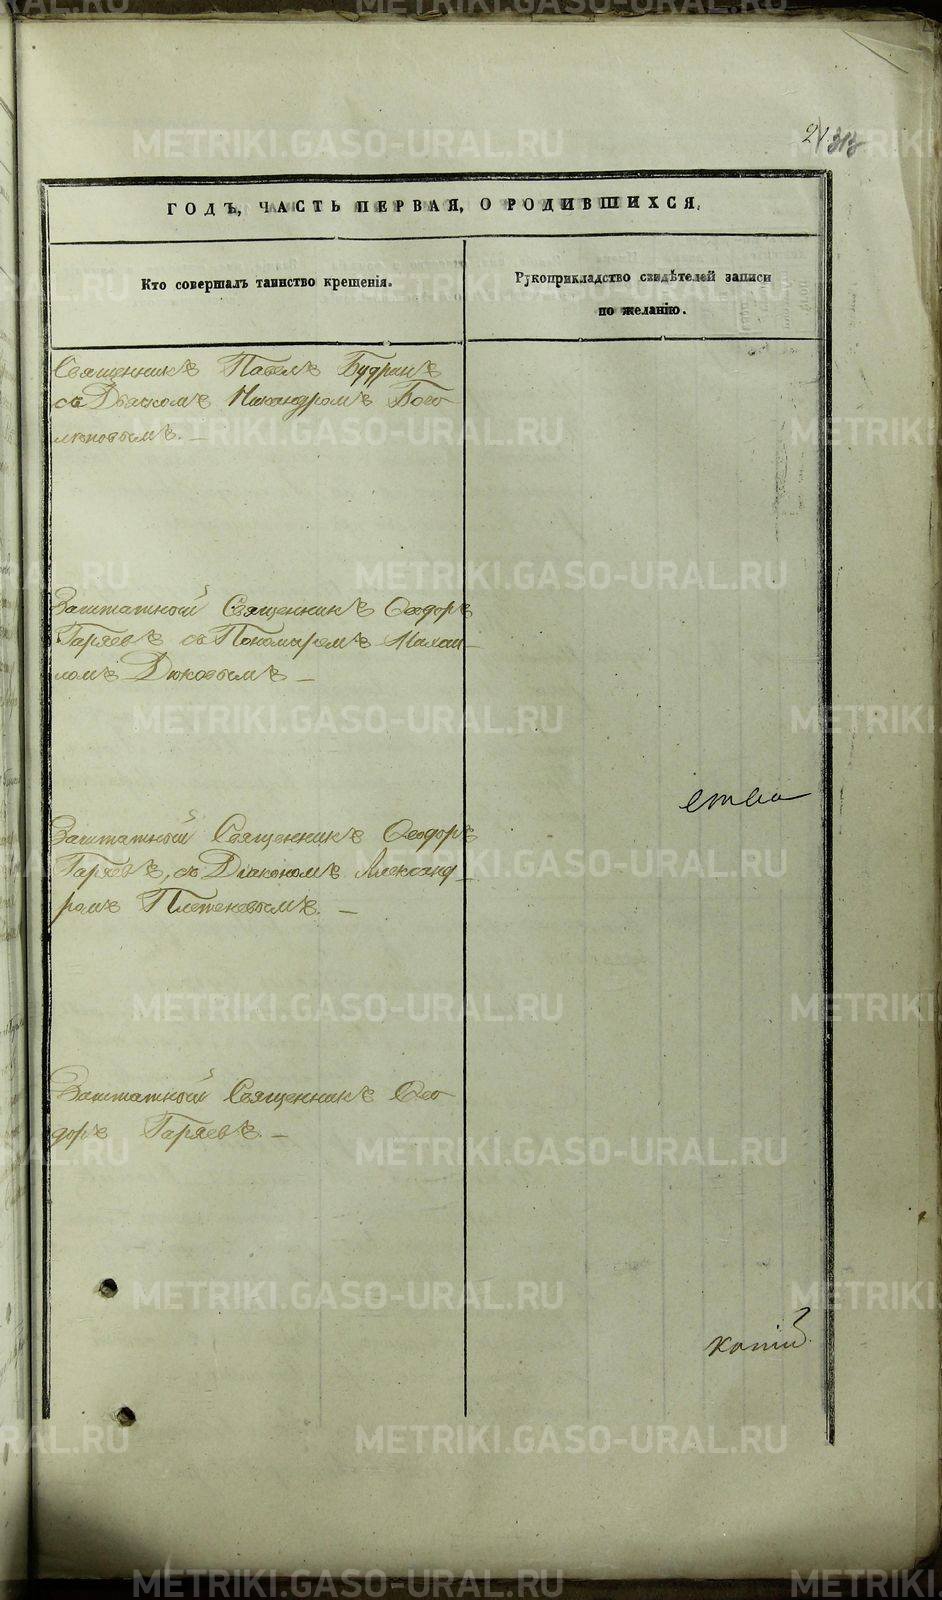 313
ГОДЪ, ЧАСТЬ ПЕРВАЯ, О РОДИВШИХСЯ.
Кто совершалъ таинство крещенія.
Рукоприкладство свидѣтелей записи
по желанію.
Священникъ Павелъ Будринъ
съ Дьячкомъ Никандромъ Бого-
лѣповымъ. –
Заштатной Священникъ Ѳеодоръ
Гаряевъ съ Пономаремъ Михаи-
ломъ Дюковымъ –
ства
Заштатной Священникъ Ѳеодоръ
Гаряевъ, съ Діакономъ Александ-
ромъ Плетеневымъ. –
Заштатной Священникъ Ѳео-
доръ Гаряевъ. –
METRIKI.GASO-URAL.RU